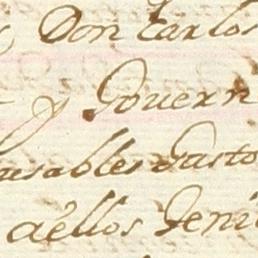 Don Carlos
y Govern
usables Gasto
aellos Geni